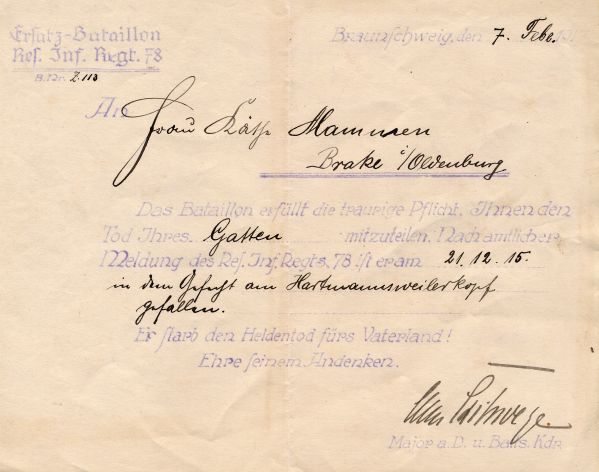 Ersatz-Bataillon
Res. Inf. Regt. 78
B.Nr. Z.113
Braunschweig, den 7. Febr.
An Frau Käthe Mammen
Brake i/Oldenburg
Das Bataillon erfüllt die traurige Pflicht, Ihnen den
Tod Ihres Gatten mitzuteilen. Nach amtlicher
Meldung des Res. Inf. Regts. 78 ist er am 21.12.15.
in dem Gefecht am Hartmannsweilerkopf
gefallen.
Er starb den Heldentod fürs Vaterland!
Ehre seinem Andenken.
Major a.D. u. Batls. Kdr.